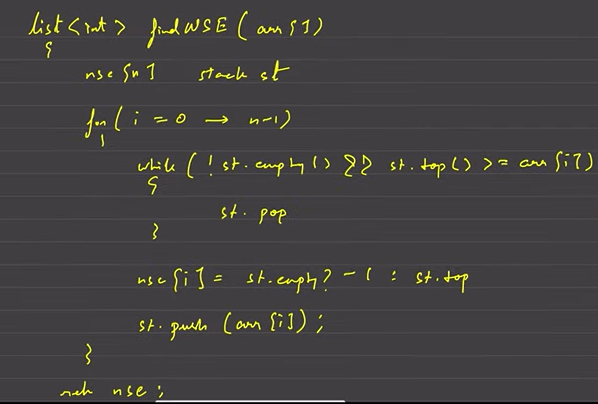 list<int> findNSE(arr[])
{
nse[n] stack st
for(i = 0 → n-1)
{
while(!st.empty() && st.top() >= arr[i])
{
st.pop
}
nse[i] = st.empty? -1 : st.top
st.push(arr[i]);
}
return nse;